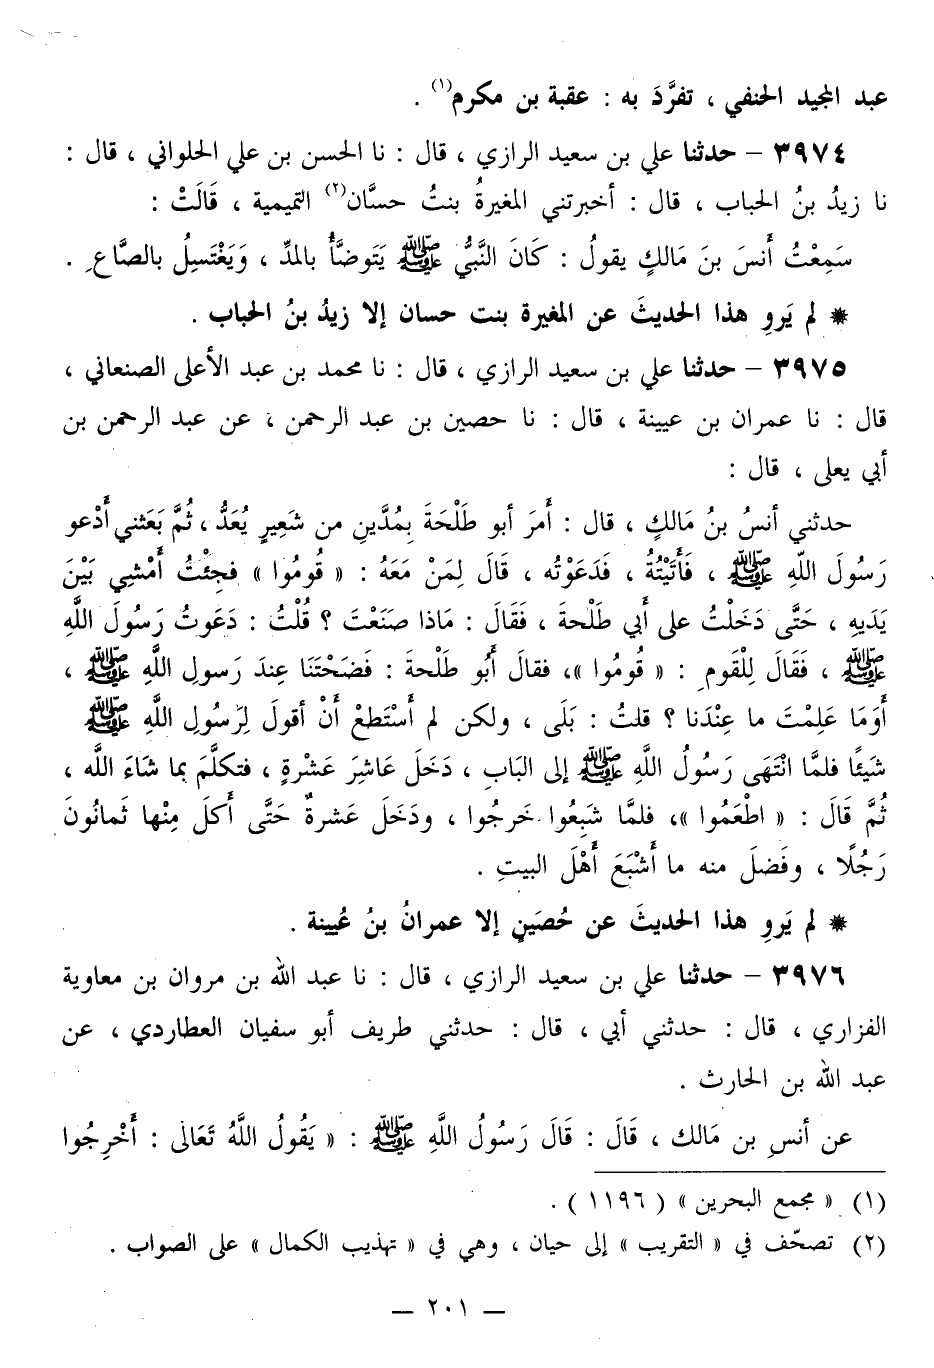 عبد المجيد الحنفي ، تفرَّدَ به : عقبة بن مكرم(١) .
٣٩٧٤ – حدثنا علي بن سعيد الرازي ، قال : نا الحسن بن علي الحلواني ، قال :
نا زيدُ بنُ الحباب ، قال : أخبرتني المغيرةُ بنتُ حسَّان(٢) التميمية ، قَالَتْ :
سَمِعْتُ أَنسَ بنَ مَالكٍ يقولُ : كَانَ النَّبيُّ ﷺ يَتَوضَّأُ بالمدِّ ، وَيَغْتَسِلُ بالصَّاعِ .
* لم يَروِ هذا الحديثَ عن المغيرة بنت حسان إلا زيدُ بنُ الحباب .
٣٩٧٥ – حدثنا علي بن سعيد الرازي ، قال : نا محمد بن عبد الأعلى الصنعاني ،
قال : نا عمران بن عيينة ، قال : نا حصين بن عبد الرحمن ، عن عبد الرحمن بن
أبي يعلى ، قال :
حدثني أنسُ بنُ مَالكٍ ، قال : أَمرَ أبو طَلْحَةَ بِمُدَّينِ من شَعِيرٍ يُعَدُّ ، ثُمَّ بَعَثني أَدْعو
رَسُولَ اللّهِ ﷺ ، فَأَتَيْتُهُ ، فَدَعَوْته ، قَالَ لِمَنْ مَعَهُ : « قُومُوا » فجِئْتُ أَمْشِي بَيْنَ
يَدَيهِ ، حَتَّى دَخَلْتُ على أَبي طَلْحةَ ، فَقَالَ : مَاذا صَنَعْتَ ؟ قُلْتُ : دَعَوتُ رَسُولَ اللَّهِ
ﷺ ، فَقَالَ لِلْقَومِ : « قُومُوا »، فقالَ أَبُو طَلْحةَ : فَضَحْتَنَا عِندَ رَسولِ اللَّهِ ﷺ ،
أَوَمَا عَلِمْتَ ما عِنْدَنا ؟ قلتُ : بَلَى ، ولكن لم أَسْتَطعْ أَنْ أقولَ لِرَسُولِ اللَّهِ ﷺ
شَيئًا فلمَّا انْتَهَى رَسُولُ اللَّهِ ﷺ إلى البَابِ ، دَخَلَ عَاشِرَ عَشْرةٍ ، فتكلَّمَ بما شَاءَ اللَّه ،
ثُمَّ قَالَ : « اطْعَمُوا »، فلمَّا شَبِعُوا خَرجُوا ، ودَخَلَ عَشرةٌ حَتَّى أَكلَ مِنْها ثَمانُونَ
رَجُلًا ، وفَضلَ منه ما أَشْبَعَ أَهْلَ البيتِ .
* لم يَروِ هذا الحديثَ عن حُصَينٍ إلا عمرانُ بنُ عُيينة .
٣٩٧٦ – حدثنا علي بن سعيد الرازي ، قال : نا عبد الله بن مروان بن معاوية
الفزاري ، قال : حدثني أبي ، قال : حدثني طريف أبو سفيان العطاردي ، عن
عبد الله بن الحارث .
عن أنسِ بن مَالك ، قَالَ : قَالَ رَسُولُ اللَّهِ ﷺ : « يَقُولُ اللَّهُ تَعَالى : أَخْرِجُوا
(١) « مجمع البحرين » ( ١١٩٦ ) .
(٢) تصحّف في « التقريب » إلى حيان ، وهي في « تهذيب الكمال » على الصواب .
— ٢٠١ —